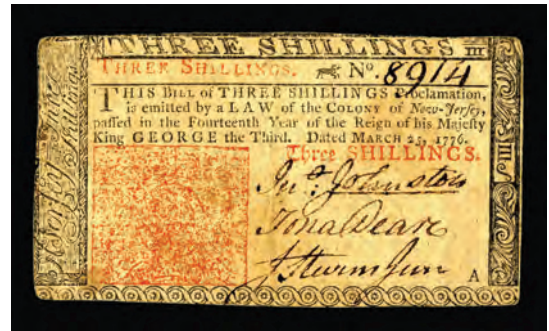 THREE SHILLINGS III
THREE SHILLINGS. No. 8914
THIS BILL of THREE SHILLINGS Proclamation,
is emitted by a LAW of the COLONY of New-Jersey,
passed in the Fourteenth Year of the Reign of his Majesty
King GEORGE the Third. Dated MARCH 25, 1776.
Three SHILLINGS.
Jno. Johnston
Jona Deare
A
III
Shillings